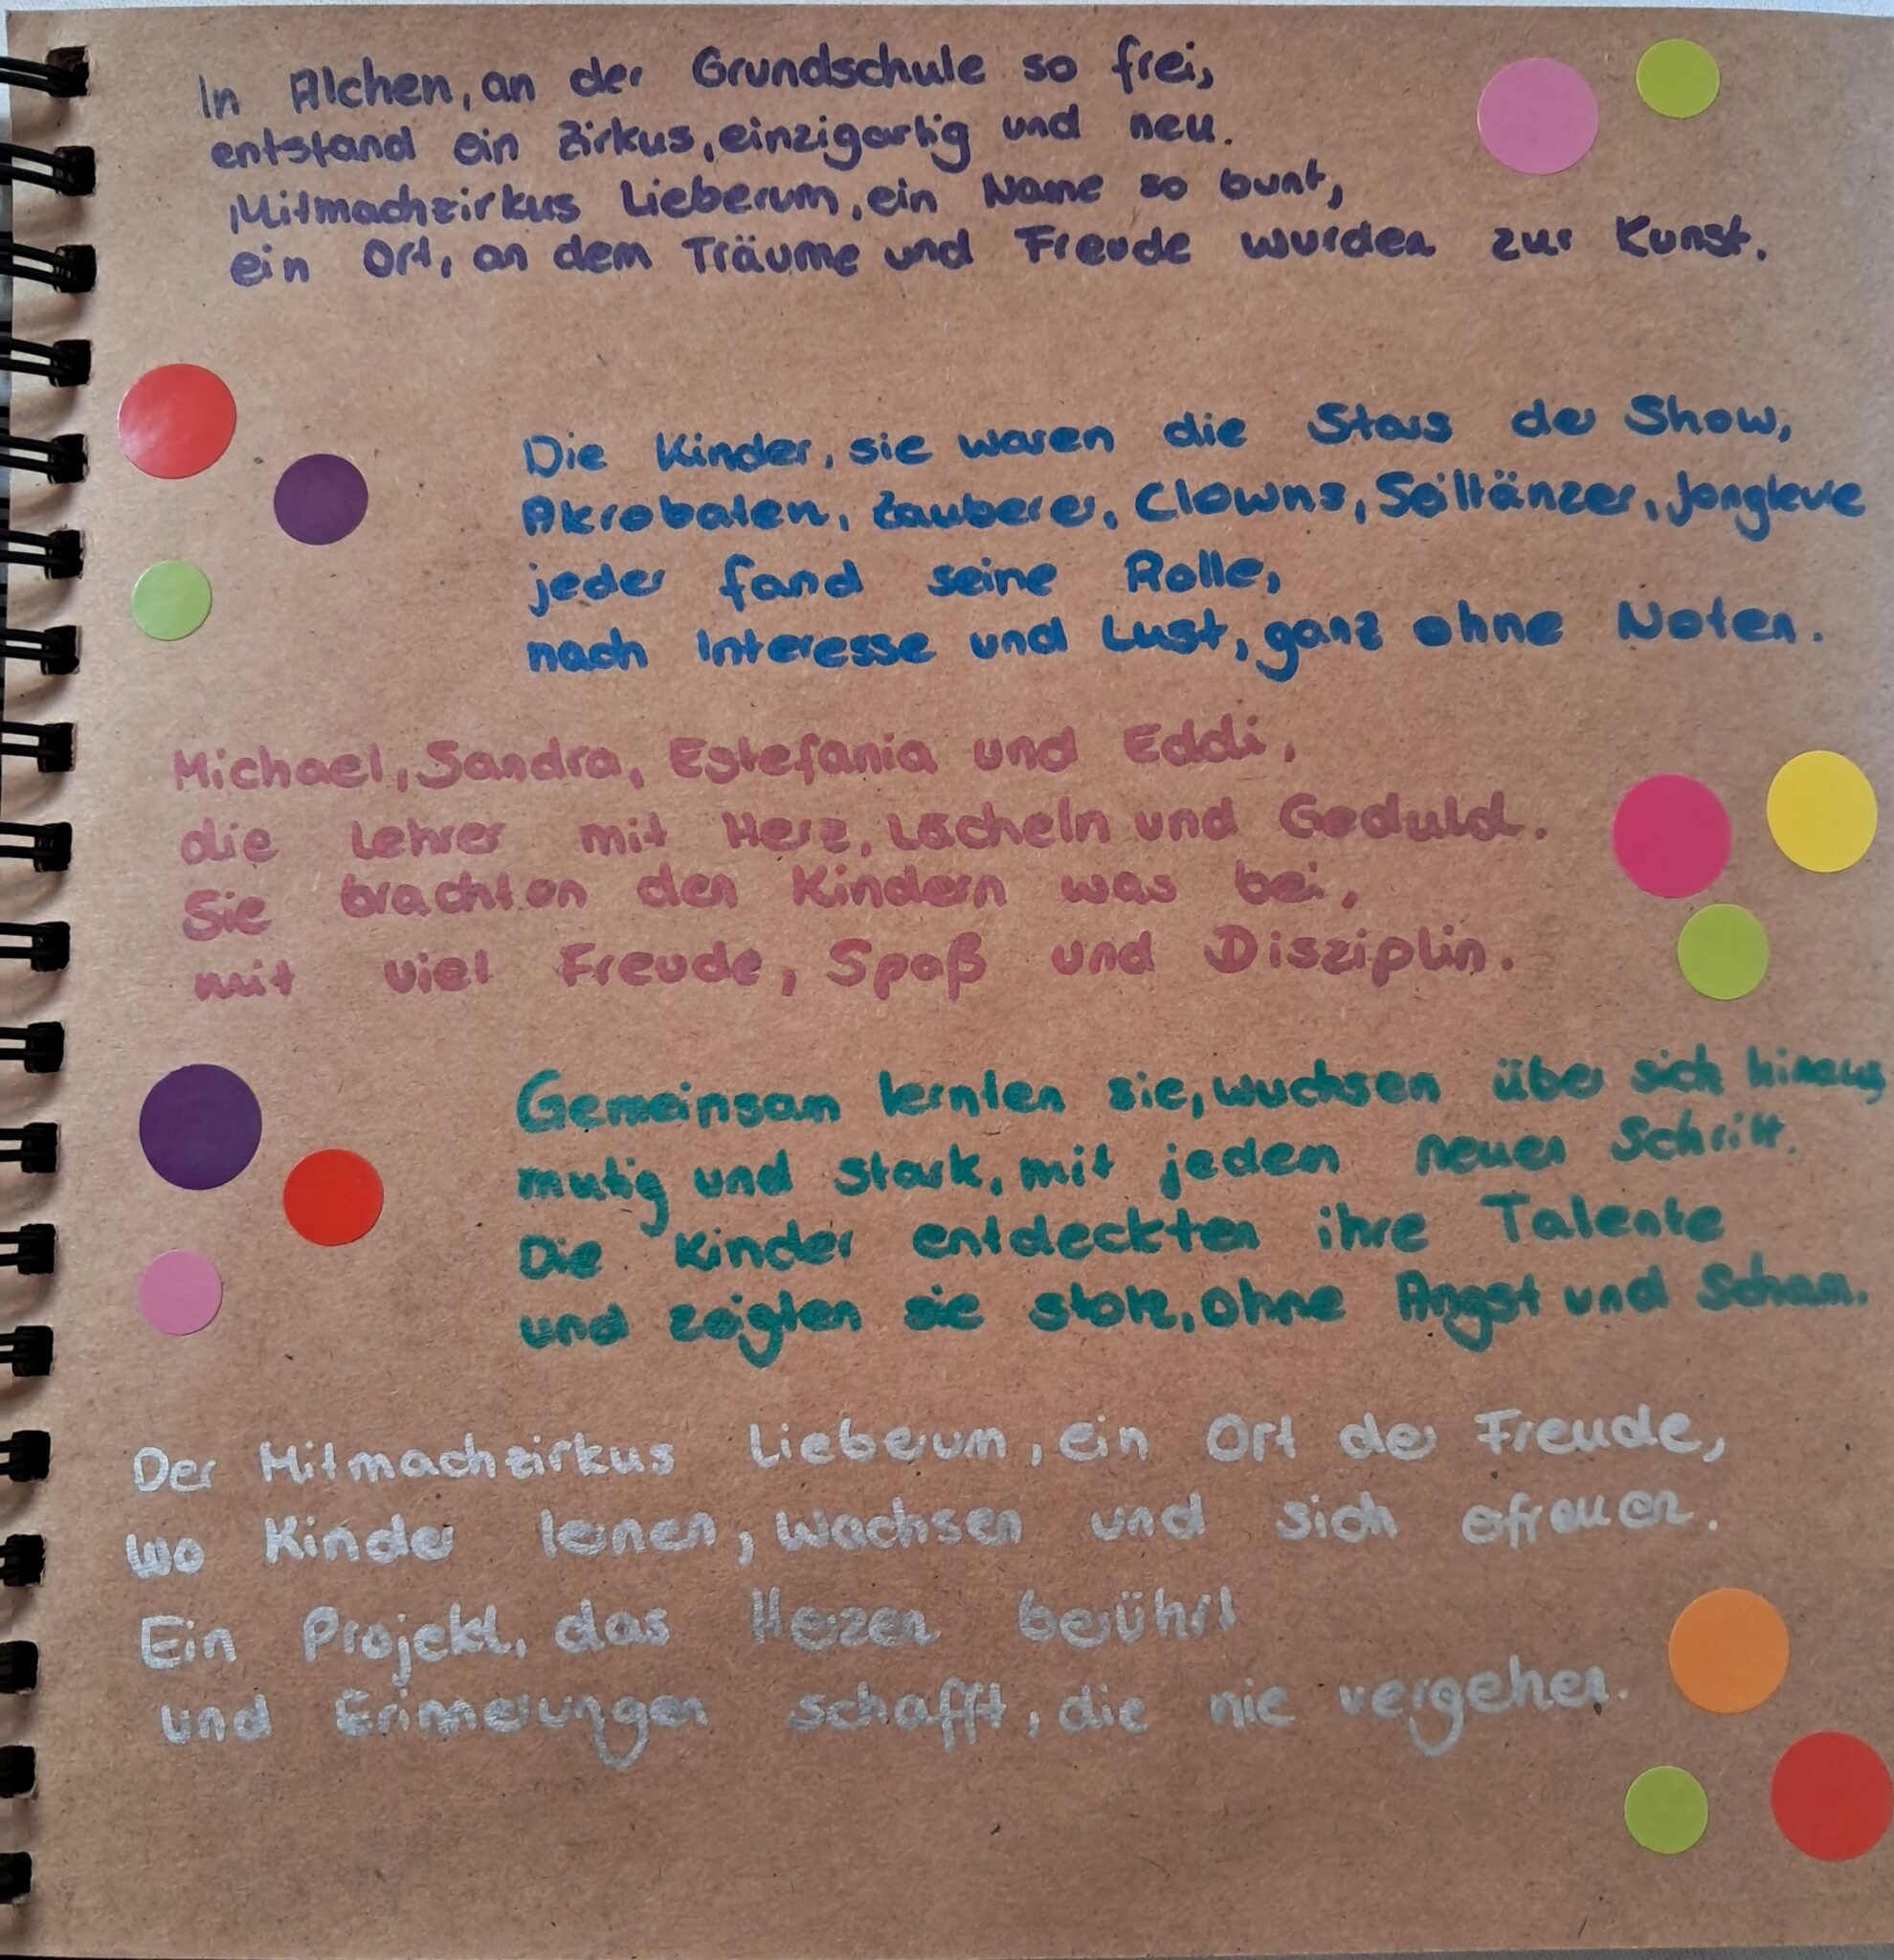 In Alchen, an der Grundschule so frei,
entstand ein Zirkus, einzigartig und neu.
Mitmachzirkus Lieberum, ein Name so bunt,
ein Ort, an dem Träume und Freude wurden zur Kunst.
Die Kinder, sie waren die Stars der Show,
Akrobaten, Zauberer, Clowns, Seiltänzer, Jongleure
jeder fand seine Rolle,
nach Interesse und Lust, ganz ohne Noten.
Michael, Sandra, Estefania und Eddi,
die Lehrer mit Herz, Lächeln und Geduld.
Sie brachten den Kindern was bei,
mit viel Freude, Spaß und Disziplin.
Gemeinsam lernten sie, wuchsen über sich hinaus,
mutig und stark, mit jeden neuen Schritt.
Die Kinder entdeckten ihre Talente
und zeigten sie stolz, ohne Angst und Scham.
Der Mitmachzirkus Lieberum, ein Ort der Freude,
wo Kinder lernen, wachsen und sich erfreuen.
Ein Projekt, das Herzen berührt
und Erinnerungen schafft, die nie vergehen.